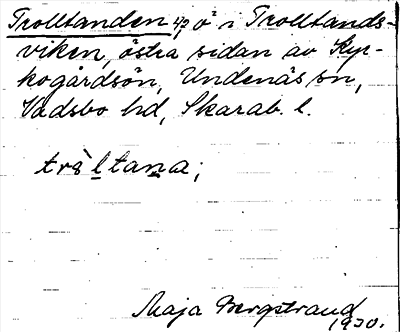 Trolltanden, ö i Trolltands-
viken, östra sidan av Kyr-
kogårdsön, Undenäs sn,
Vadsbo hd, Skarab. l.
tràltana;
Maja Bergstrand
1930.